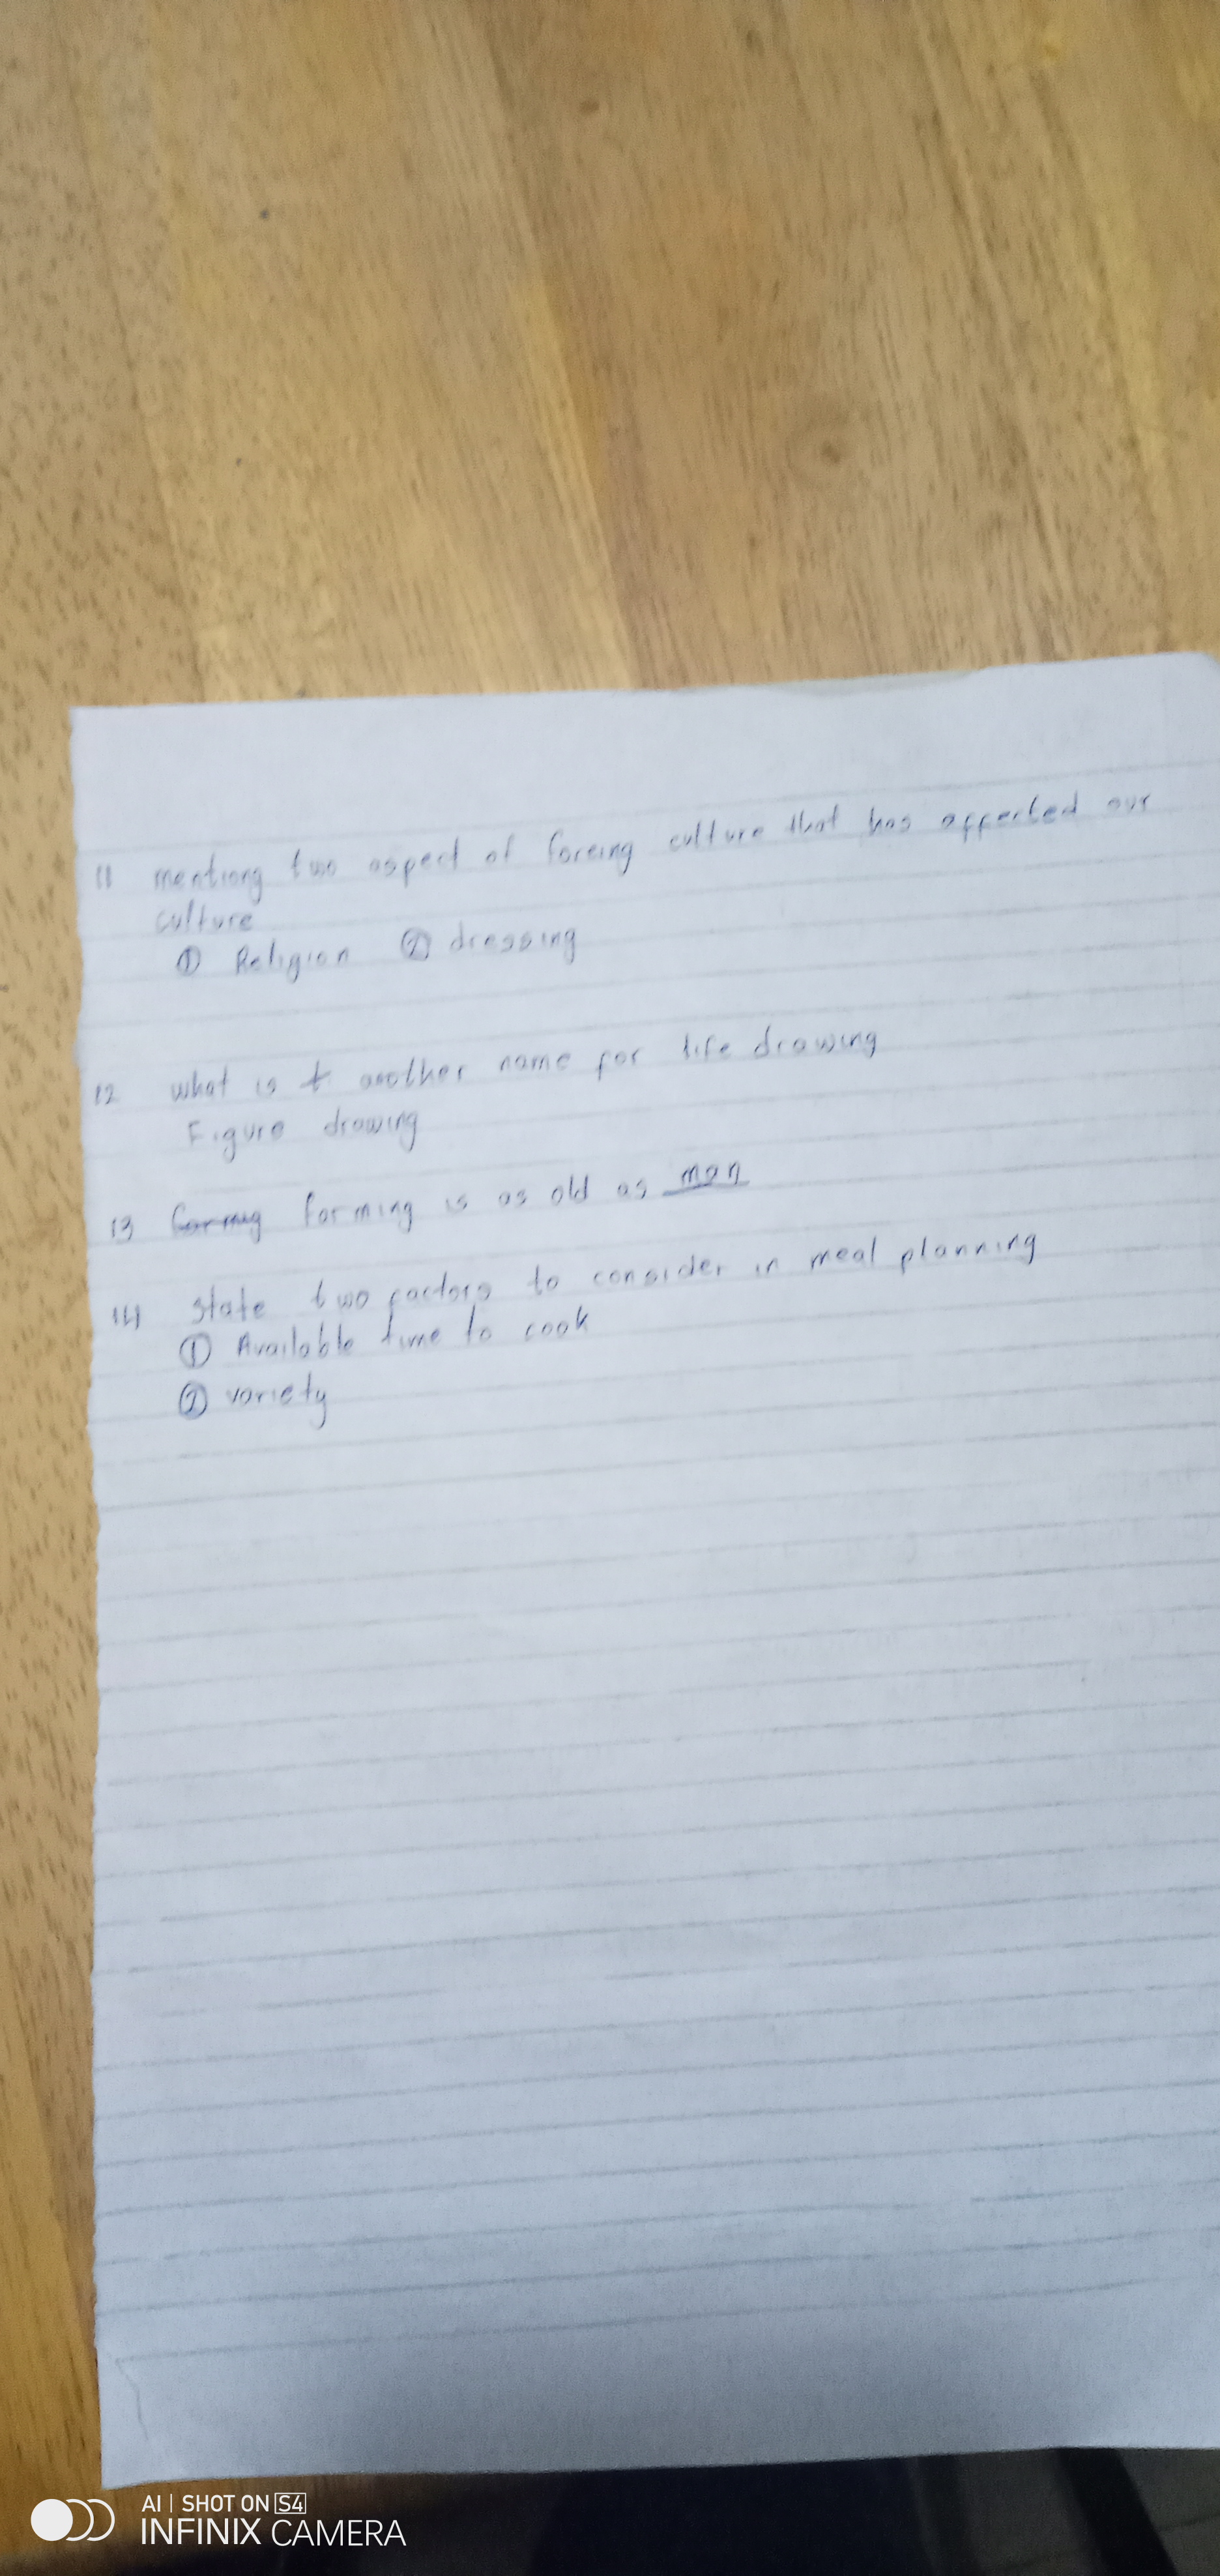 11 mentiong two aspect of foreing culture that has affected our
culture
① Religion ② dressing
12 what is t another name for life drawing
Figure drawing
13 farmig farming is as old as man
14 state two factors to consider in meal planning
① Available time to cook
② variety
AI | SHOT ON S4
INFINIX CAMERA